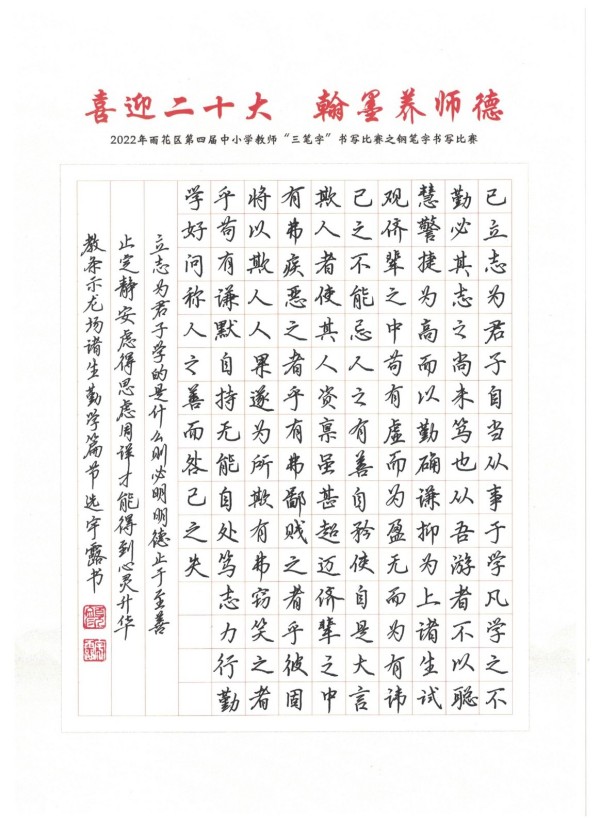 喜迎二十大 翰墨养师德
2022年雨花区第四届中小学教师“三笔字”书写比赛之钢笔字书写比赛
已立志为君子自当从事于学凡学之不
勤必其志之尚未笃也从吾游者不以聪
慧警捷为高而以勤确谦抑为上诸生试
观侪辈之中苟有虚而为盈无而为有讳
己之不能忌人之有善自矜侠自是大言
欺人者使其人资禀虽甚超迈侪辈之中
有弗疾恶之者乎有弗鄙贱之者乎彼固
将以欺人人果遂为所欺有弗窃笑之者
乎苟有谦默自持无能自处笃志力行勤
学好问称人之善而咎己之失
立志为君子学的是什么则必明明德止于至善
止定静安虑得思虑周详才能得到心灵升华
教条示龙场诸生勤学篇节选宇露书